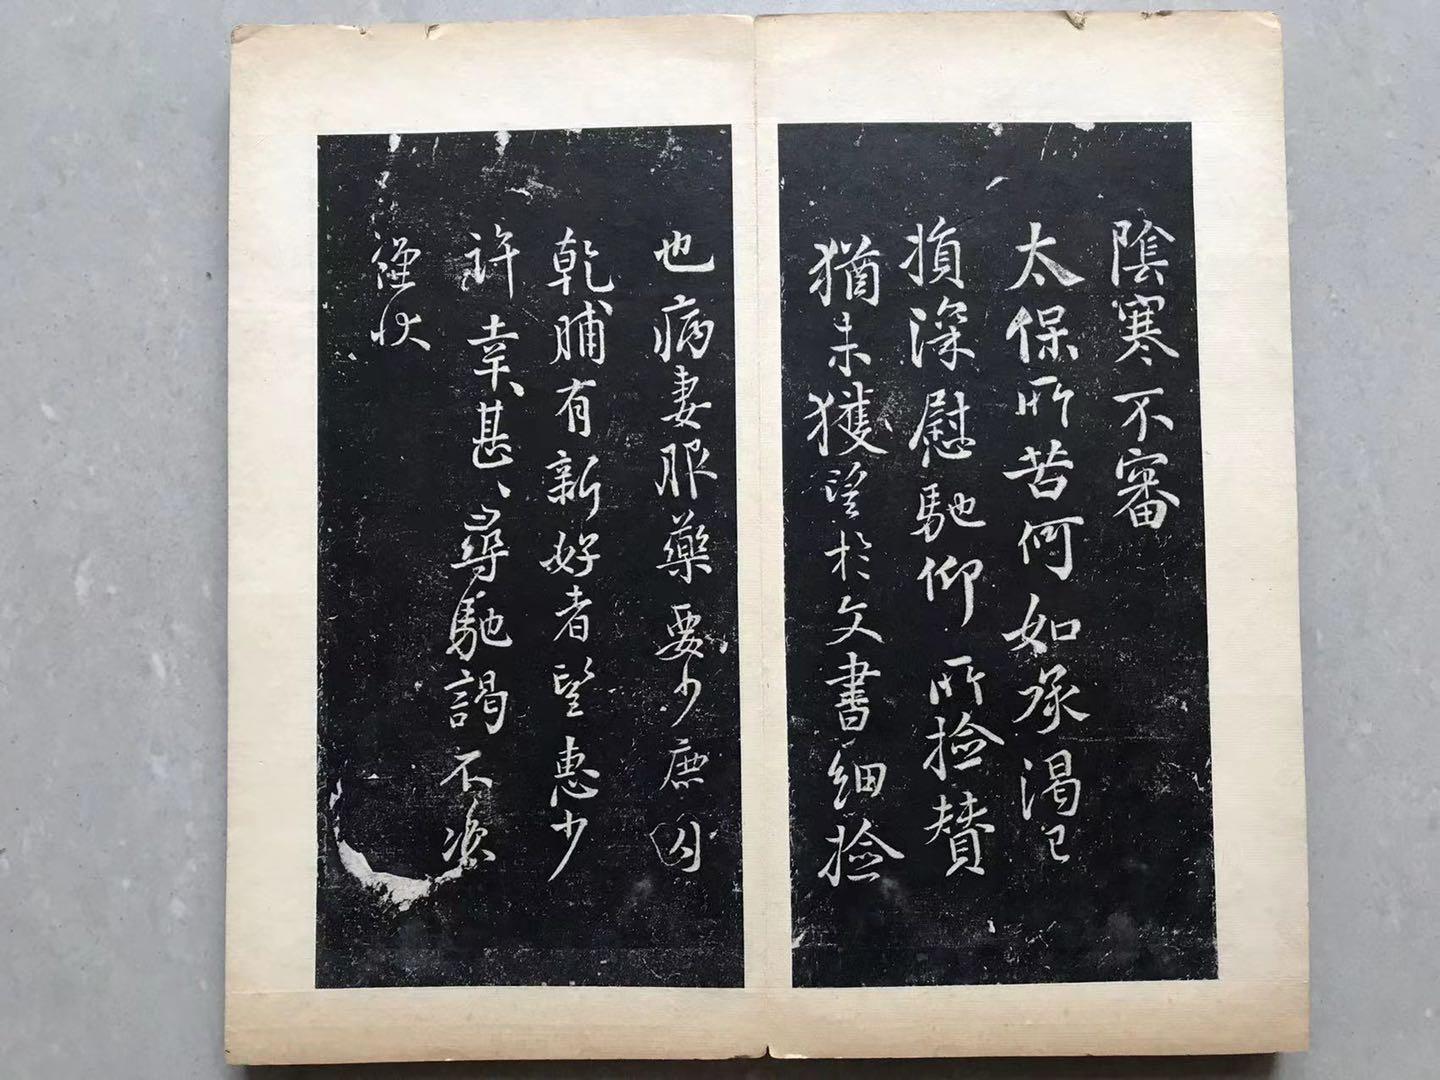 陰寒不審
太保所苦何如承渴已
損深慰馳仰所撿贊
猶未獲望於文書細撿
也病妻服藥要少鹿肉
乾脯有新好者望惠少
許幸甚、尋馳謁不次
謹狀